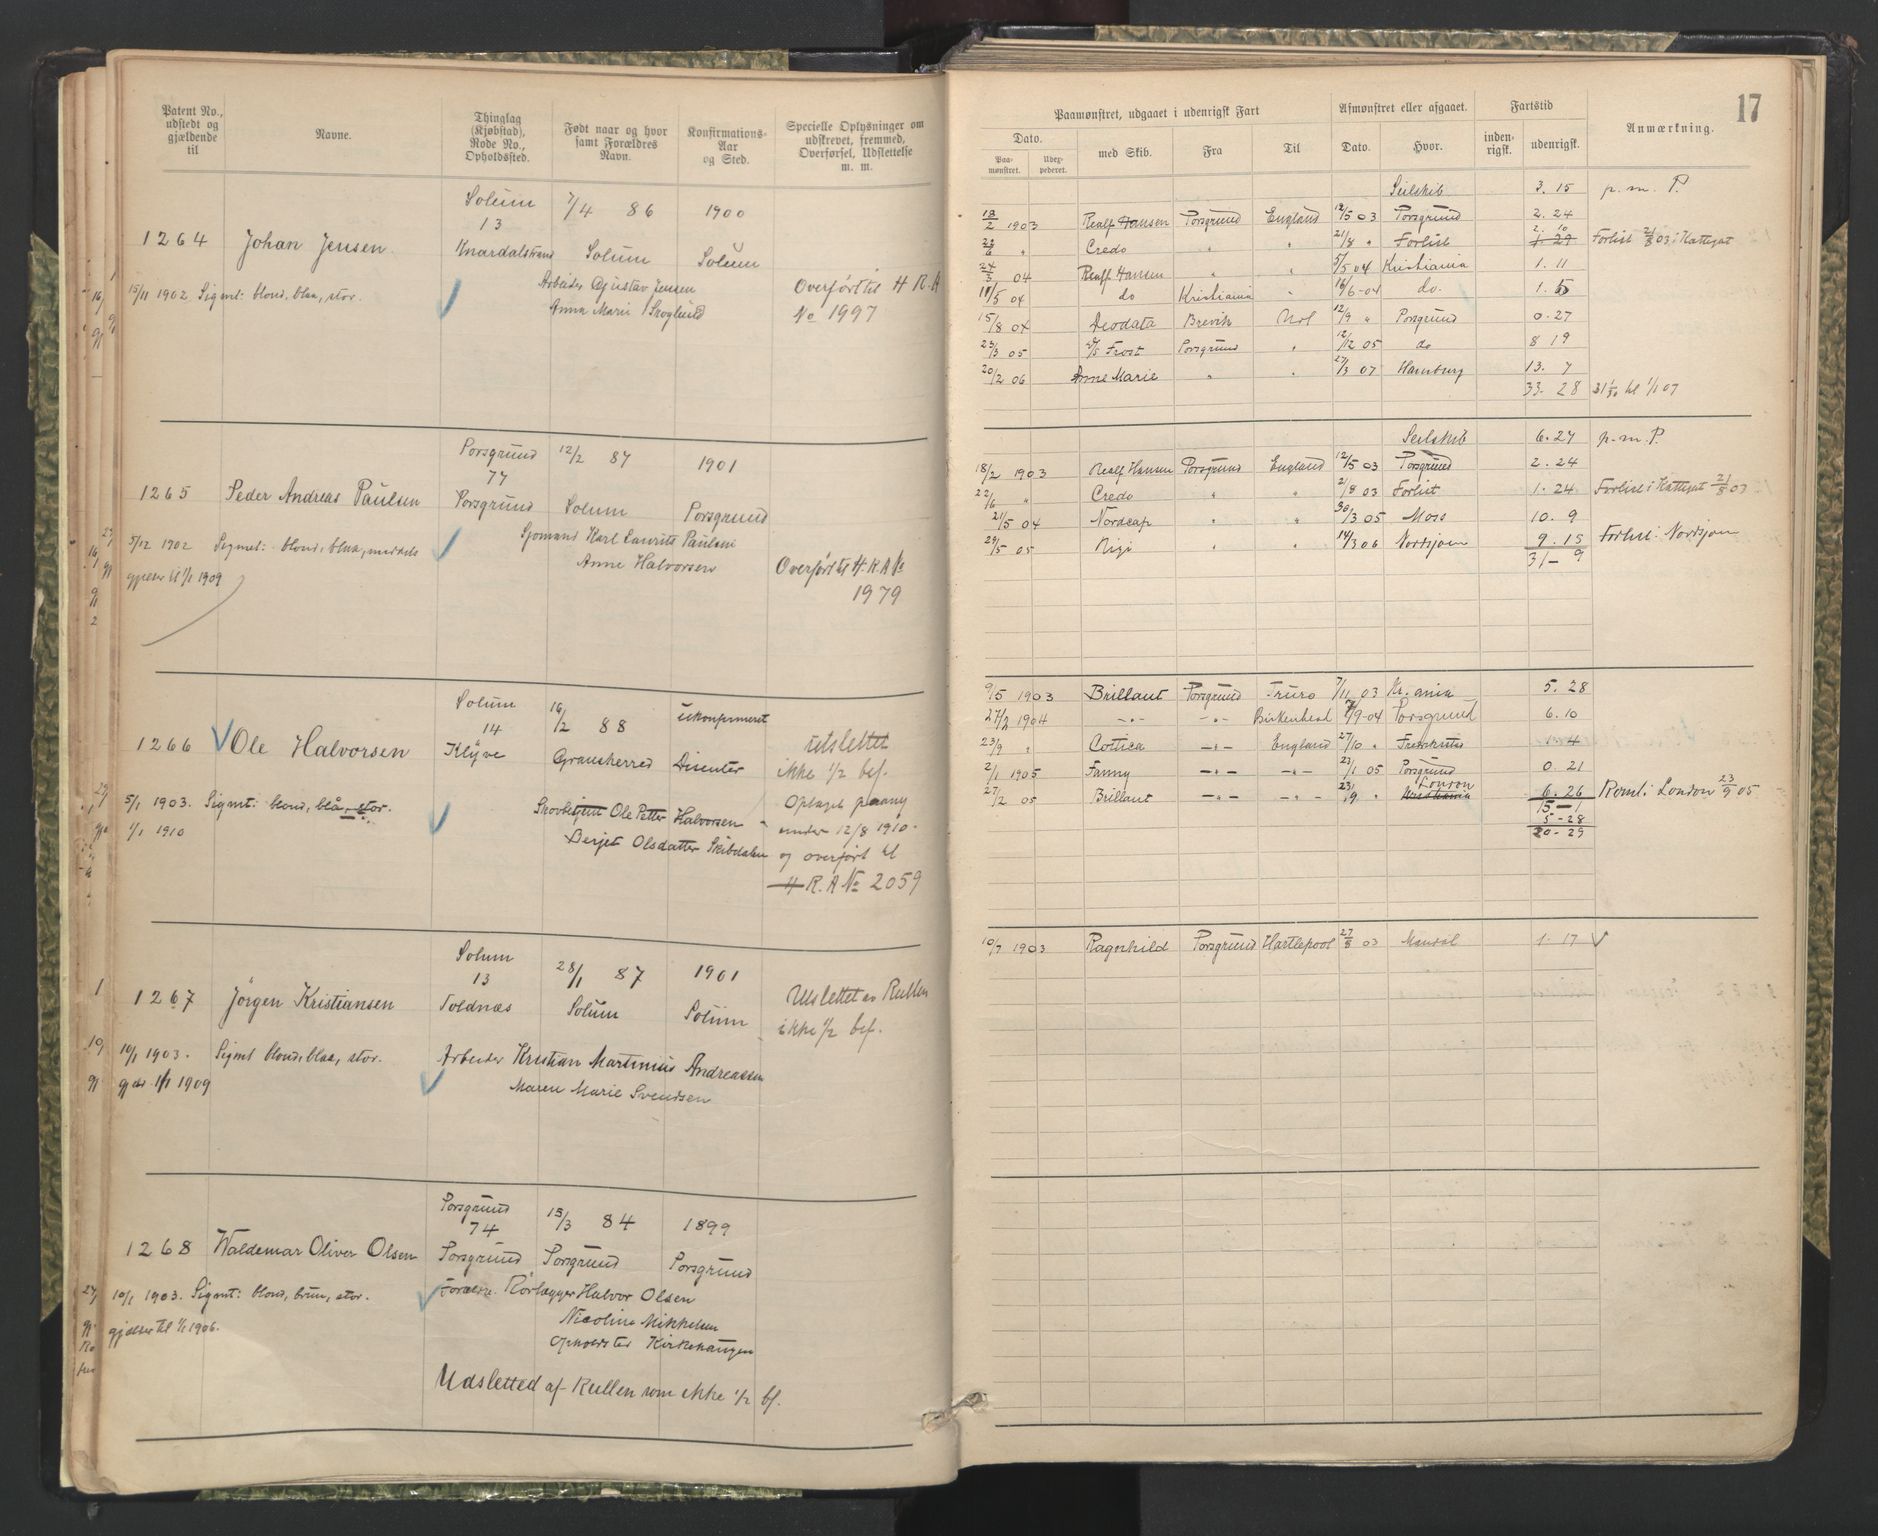 Patent No., udstedt og gjældende til
Navne.
Thinglag (Kjøbstad), Rode No., Opholdssted.
Født naar og hvor samt Forældres Navn.
Konfirmations-Aar og Sted.
Specielle Oplysninger om udskrevet, fremmed, Overførsel, Udslettelse m. m.
Solum 7/4 86 1900
13
1264 Johan Jensen. Knardalstrand Solum Solum
15/11 1902 Sigmt: blond, blaa, stor. Arbeider Gustav Jensen Overført til H R. A
Anna Marie Skoglund No 1997
Porsgrund 12/2 87 1901
77
1265 Peder Andreas Paulsen Porsgrund Solum Porsgrund
5/12 1902 Sigmt: blond, blaa, middels Sjømand Karl Lauritz Paulsen
gjelder til 1/1 1909 Anne Halvorsen Overført til H. R. A No
1979
Solum 16/2 88 ukonfirmeret
14
1266 Ole Halvorsen Klyve Gransherred Disenter
utslettet
ikke 1/2 bef.
5/1 1903. Sigmt: blond, blå, stor. Ole Petter Halvorsen
1/1 1910 Berjet Olsdatter Skibdalen
Optaget paany
under 12/8 1910.
og overført til
H R. A No 2059
Solum 28/1 87 1901
13
1267 Jørgen Kristiansen Toldnæs Solum Solum
Utslettet av Rullen
ikke 1/2 bef.
10/1 1903. Sigmt blond, blaa, stor. Arbeider Kristian Martinius Andreassen
1/1 1909 Maren Marie Svendsen
Porsgrund 15/3 84 1899
74
1268 Waldemar Oliver Olsen Porsgrund Porsgrund Porsgrund
10/1 1903. Sigmt: blond, brun, stor. Rørlægger Halvor Olsen
gjelder til 1/1 1906. Nicoline Mikkelsen
Kirkehaugen
Udsletted af Rullen som ikke 1/2 bf.
17
Paamønstret, udgaaet i udenrigsk Fart
Afmønstret eller afgaaet.
Fartstid
Anmærkning.
Dato.
Paa-mønstret.
Udex-pederet.
med Skib.
Fra
Til
Dato.
Hvor.
inden-rigsk.
udenrigsk.
Seilskib 3. 15 p. m. P.
18/2 1903 Realf Hansen Porsgrund England 12/5 03 Porsgrund 2. 24
22/6 " Credo " " 21/8 " Forlist 2. 10 1 29 Forlist 21/8 03 i Kattegat
24/3 04 Realf Hansen " " 5/5 04 Kristiania 1. 11
11/5 04 do Kristiania " 16/6-04 do. 1. 5
15/8 04 Deodata Brevik Hol 12/9 " Porsgrund 0. 27
23/3 05 D/S Frost Porsgrund " 12/12 05 do 8 19
20/2 06 Anne Marie " " 27/3 07 Hamburg 13. 7
33. 28 til 1/1 07
Seilskib 6. 27 p. m. P.
18/2 1903 Realf Hansen Porsgrund England 12/5 03 Porsgrund 2. 24
22/6 " Credo " " 21/8 03 Forlist 1. 24 Forlist i Kattegat 21/8 03
21/5 04 Nordcap " " 30/3 05 Moss 10. 9
29/5 05 Rigi " " 14/3 06 Nordsjøen 9. 15 Forlist i Nordsjøen
31 - 9
9/5 1903 Brillant Porsgrund Truro 7/11 03 Kr.ania 5. 28
27/2 1904 -"- -"- Birkenhead /9-04 Porsgrund 6. 10
23/9 " Cottica -"- England 27/10 " 1 4
2/1 1905 Fanny -"- -"- 23/1 05 Porsgrund 0. 21
27/2 05 Brillant -"- -"- 23/9 " Kristiania London 6. 26 Romt: London 23/9 05
15 - 1
5 - 28
20 - 29
10/7 1903 Ragnhild Porsgrund Hartlepool 27/8 03 Mandal 1. 17